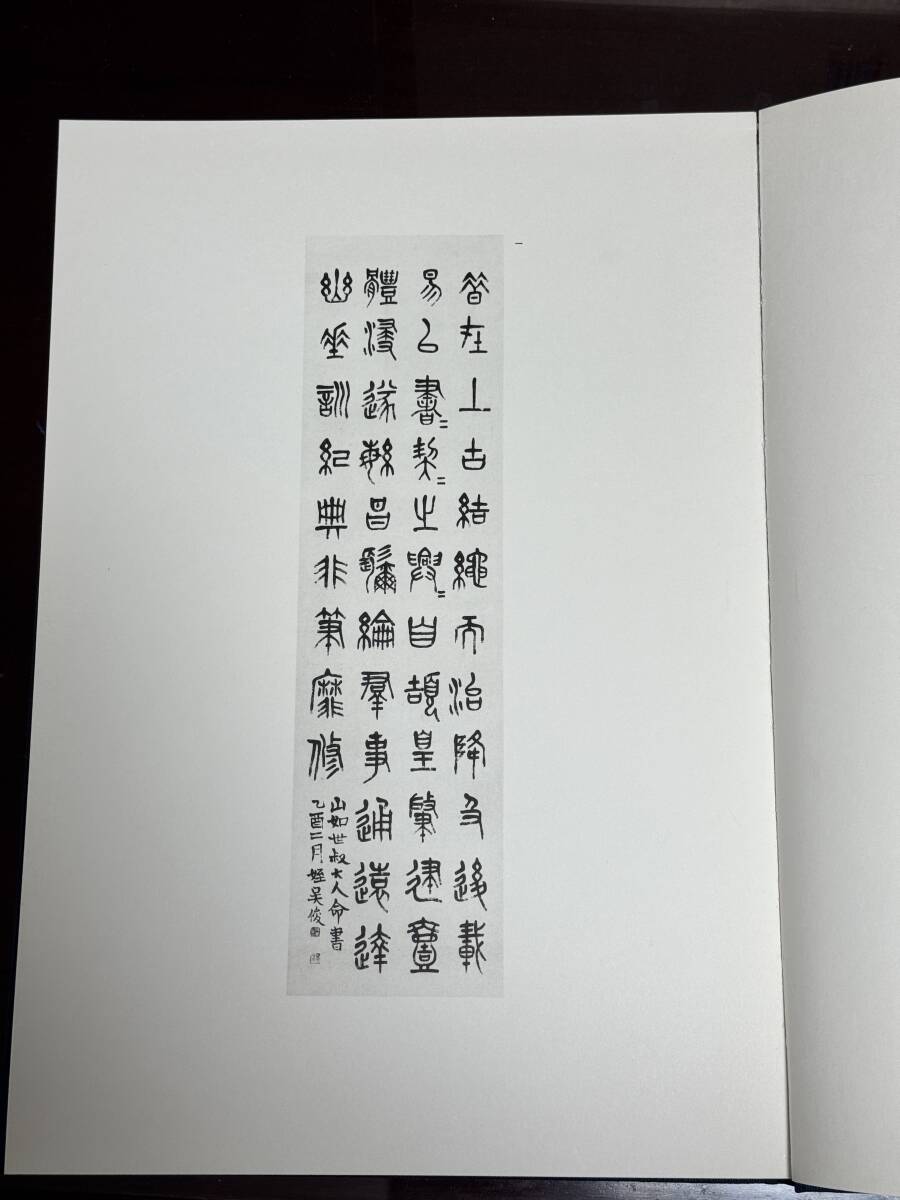 一
昔在上古結繩而治降及後載
易㠯書=契=之興=自頡皇肇建壹
體浸遂緐昌镾綸羣事通遠達
幽垂訓紀典非筆靡修
山如世叔大人命書
乙酉二月姪吳俊